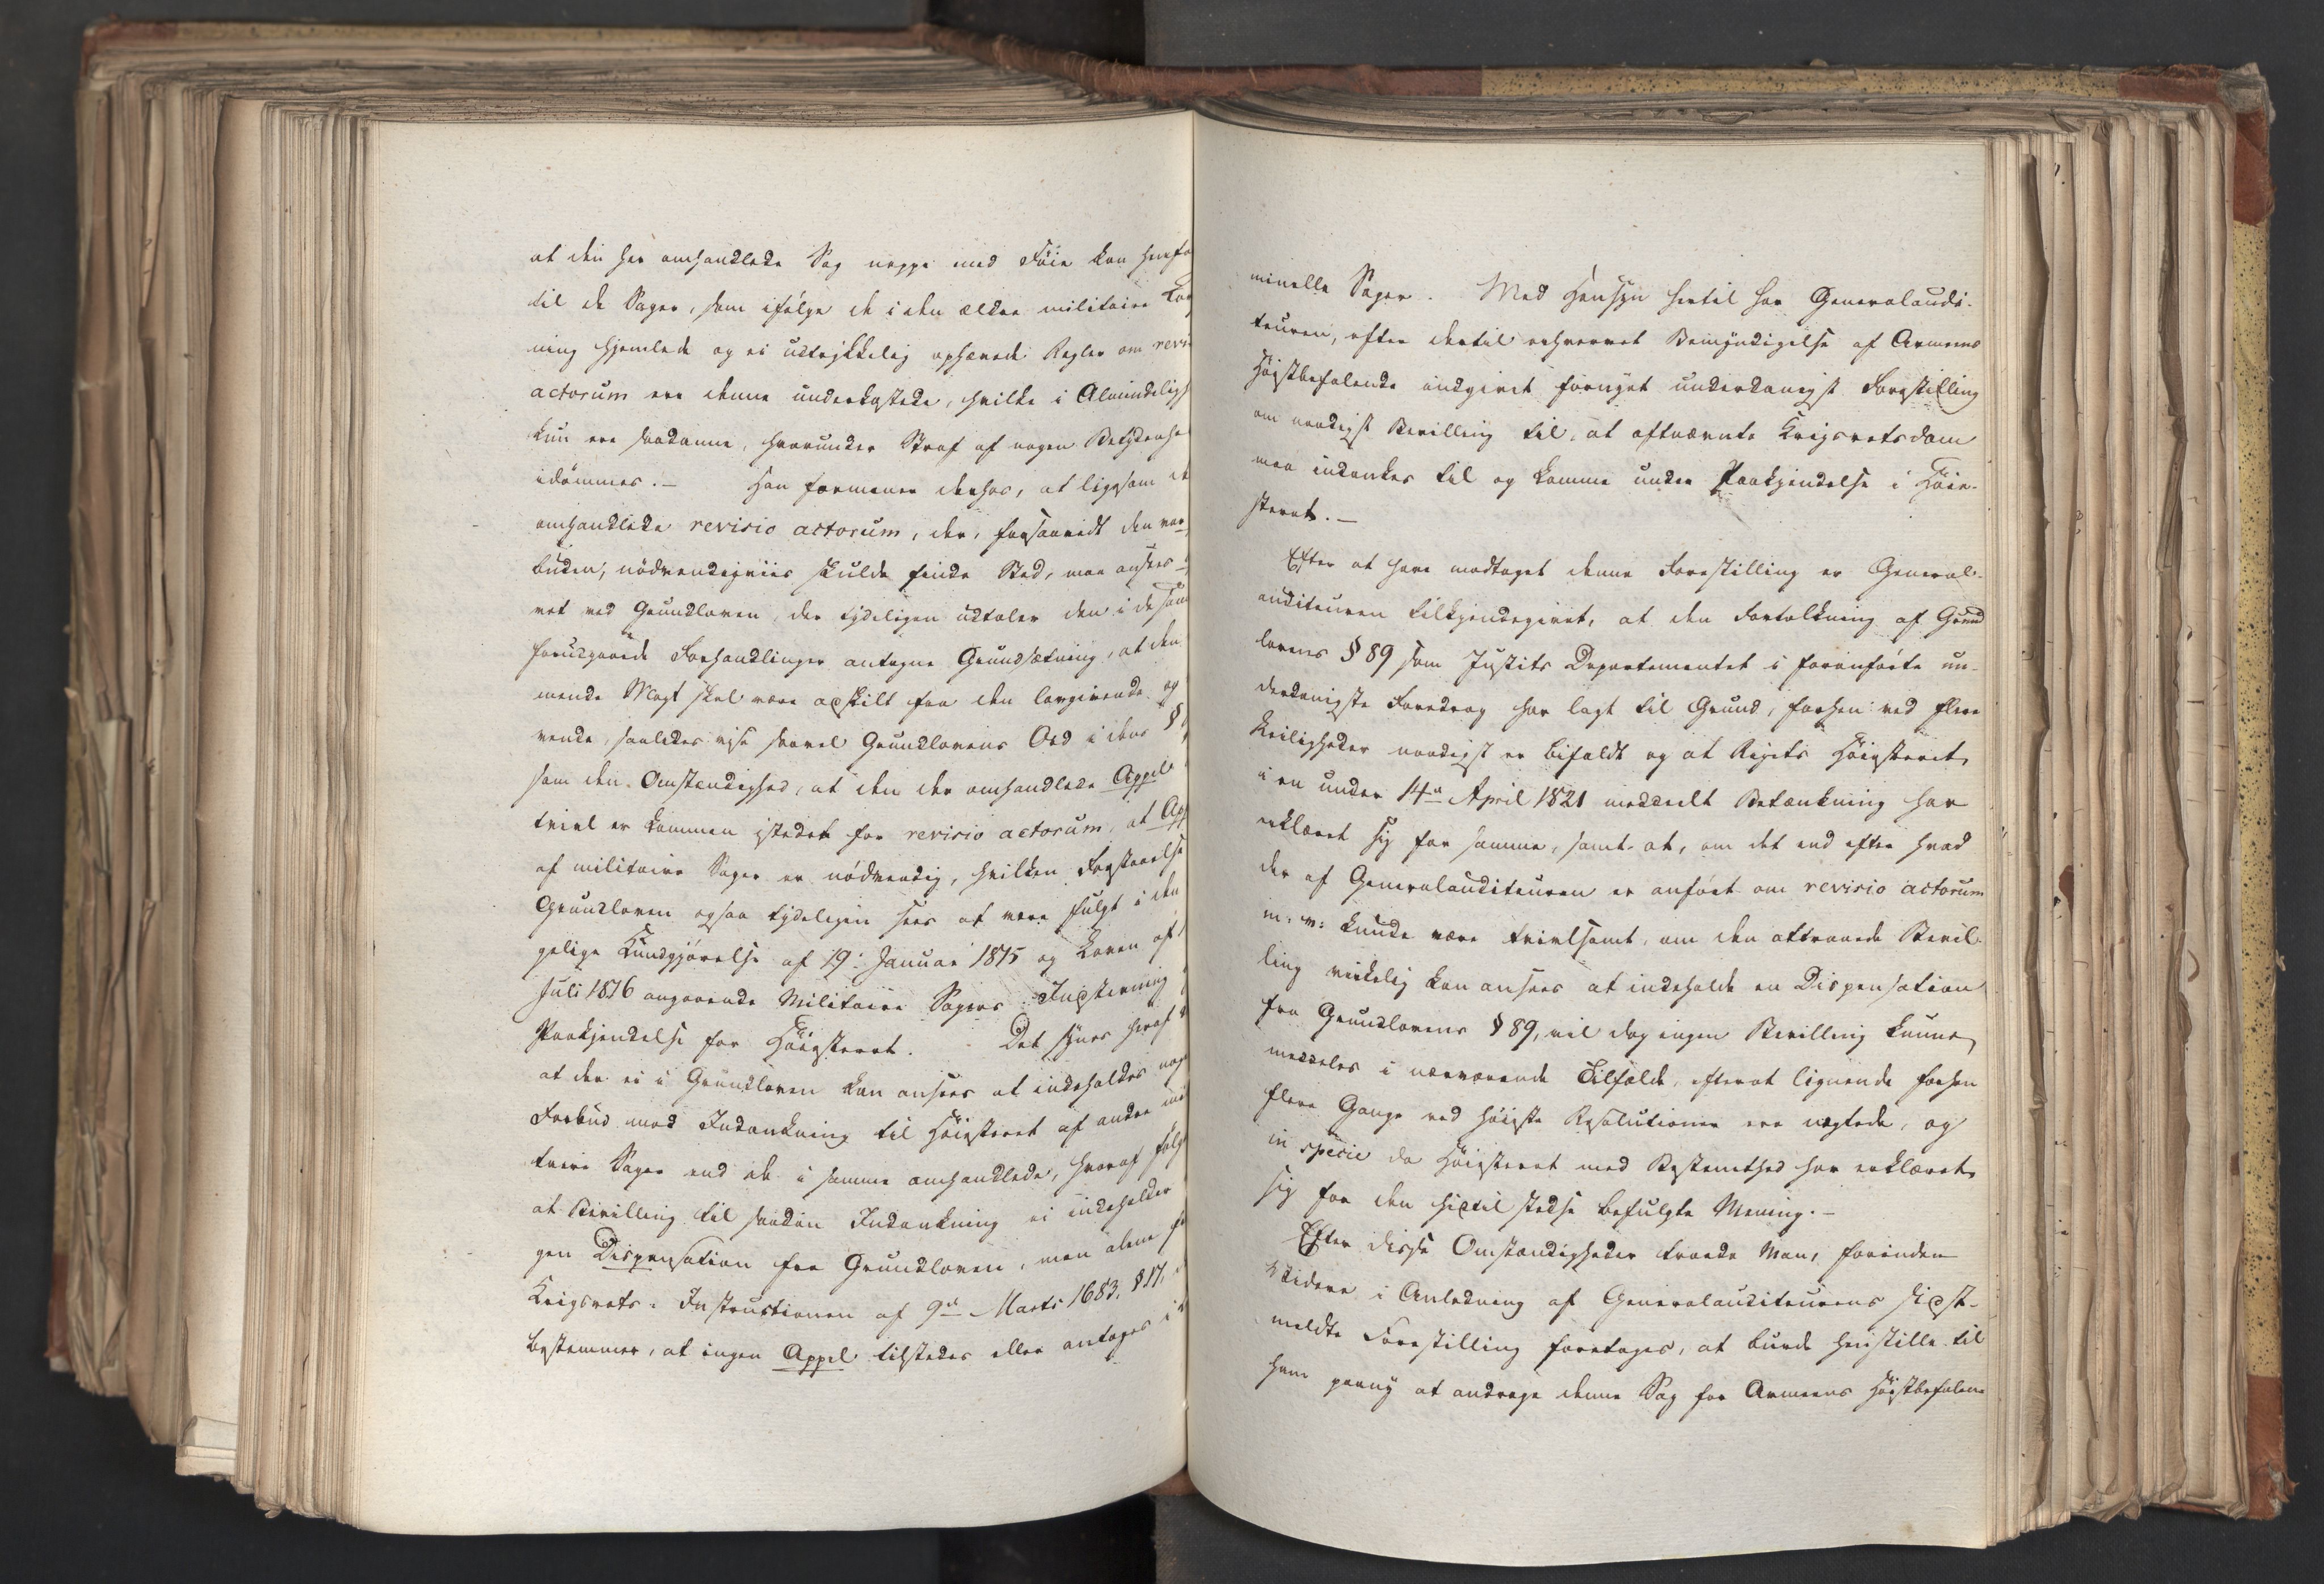 at den her omhandlede Sag neppe med Føie kan henfø
til de Sager, som ifølge de i den ældre militaire Lov
ning hjemlede og ei udtrykkelig ophævede Regler om revi
actorum ere denne underkastede, hvilke i Almindeligh
kun ere saadanne, hvorunder Straf af nogen Betydenhe
idømmes.— Han formener derhos, at ligesom de
omhandlede revisio actorum, der, forsaavidt den var
buden, nødvendigviis skulde finde Sted, maa ansees
vet ved Grundloven, der tydeligen udtaler den i de
forudgaaede Forhandlinger antagne Grundsætning, at den
mende Magt skal være adskilt fra den lovgivende og
vende, saaledes vise saavel Grundlovens Ord i dens §
som den Omstændighed, at den der omhandlede Appel
tvivl er kommen istedet for revisio actorum, at App
af militaire Sager er nødvendig, hvilken Forstaaelse
Grundloven ogsaa tydeligen sees at være fulgt i den
gelige Kundgjørelse af 19: Januar 1815 og Loven af
Juli 1816 angaaende Militaire Sagers Indstevning
Paakjendelse for Høiesteret. Det synes heraf
at der ei i Grundloven kan ansees at indeholdes nog
Forbud mod Indankning til Høiesteret af andre mi
taire Sager end de i samme omhandlede, hvoraf følg
at Bevilling til saadan Indankning ei indeholder
gen Dispensation fra Grundloven, men alene fr
Krigsrets-Instructionen af 9de Marts 1683, § 17,
bestemmer, at ingen Appel tilstedes eller antages i
minelle Sager. Med Hensyn hertil har Generalaudi-
teuren, efter dertil erhvervet Bemyndigelse af Armeens
Høistbefalende indgivet fornyet underdanigst Forestilling
om naadigst Bevilling til, at oftnævnte Krigsretsdom
maa indankes til og komme under Paakjendelse i Høie-
steret.—
Efter at have modtaget denne Forestilling er General-
auditeuren tilkjendegivet, at den Fortolkning af Grund
lovens § 89 som Justits Departementet i foranførte un-
derdanigste Foredrag har lagt til Grund, forhen ved flere
Leiligheder naadigst er bifaldt og at Rigets Høiesteret
i en under 14de April 1821 meddeelt Betænkning har
erklæret sig for samme, samt at, om det end efter hvad
der af Generalauditeuren er anført om revisio actorum
m: v: kunde være tvivlsomt, om den attraaede Bevil-
ling virkelig kan ansees at indeholde en Dispensation
fra Grundlovens § 89, vil dog ingen Bevilling kunne
meddeles i nærværende Tilfælde, efterat lignende forhen
flere Gange ved høieste Resolutioner ere nægtede, og
in specie da Høiesteret med Bestemthed har erklæret
sig for den hidtil stedse befulgte Mening.—
Efter disse Omstændigheder troede man, forinden
Videre i Anledning af Generalauditeurens sidst-
meldte Forestilling foretoges, at burde henstille til
ham paany at andrage denne Sag for Armeens Høistbefalen